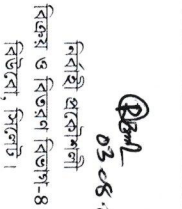 ০৩.০৪.
নির্বাহী প্রকৌশলী
বিক্রয় ও বিতরণ বিভাগ-৪
বিউবো, সিলেট।